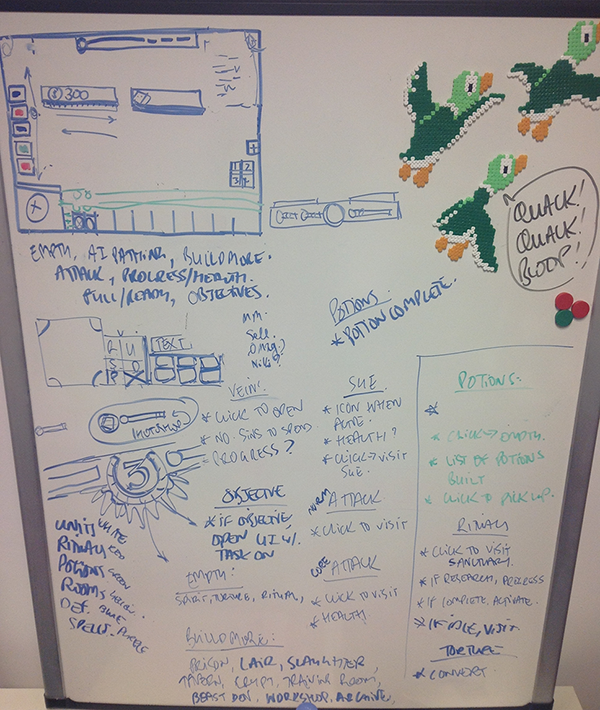 300
1 2
3
QUACK!
QUACK!
BLOOP!
EMPTY, AI PATHING, BUILD MORE.
ATTACK, PROGRESS/HEALTH.
FULL/READY, OBJECTIVES.
Sell.
POTIONS
* POTION COMPLETE.
TEXT
VEIN:
* CLICK TO OPEN
* NO. SINS TO SPEND
* PROGRESS?
SUE
* ICON WHEN
ACTIVE.
* HEALTH?
* CLICK → VISIT
SUE.
POTIONS:
*
* CLICK → EMPTY.
* LIST OF POTIONS
BUILT
* CLICK TO PICK UP.
3
OBJECTIVE
* IF OBJECTIVE
OPEN UI W/.
TASK ON
ATTACK
* CLICK TO VISIT
UNITS WHITE
RITUAL RED
POTIONS GREEN
ROOMS YELLOW.
DEF. BLUE
SPELLS. PURPLE
RITUAL
* CLICK TO VISIT
SANCTUARY.
* IF RESEARCH, PROGRESS
* IF COMPLETE, ACTIVATE.
* IF IDLE, VISIT
EMPTY:
SPIRIT, TORTURE, RITUAL,
CORE ATTACK
* CLICK TO VISIT
* HEALTH.
TORTURE
* CONVERT.
BUILD MORE:
PRISON, LAIR, SLAUGHTER,
TAVERN, CRYPT, TRAINING ROOM,
BEAST DEN, WORKSHOP, ARCHIVE,